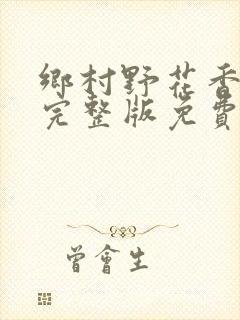 鄉村野花香
完整版免費
曾會生